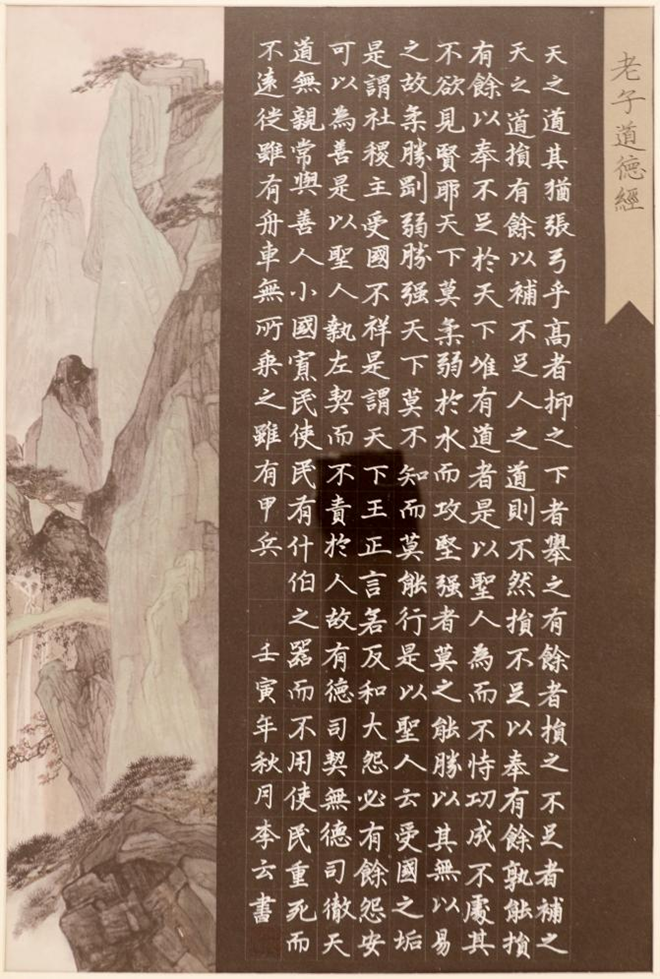 老子道德經
天之道其猶張弓乎高者抑之下者舉之有餘者損之不足者補之
天之道損有餘以補不足人之道則不然損不足以奉有餘孰能損
有餘以奉不足於天下唯有道者是以聖人為而不恃功成不處其
不欲見賢耶天下莫柔弱於水而攻堅强者莫之能勝以其無以易
之故柔勝剛弱勝强天下莫不知而莫能行是以聖人云受國之垢
是謂社稷主受國不祥是謂天下王正言若反和大怨必有餘怨安
可以為善是以聖人執左契而不責於人故有德司契無德司徹天
道無親常與善人小國寡民使民有什伯之器而不用使民重死而
不遠徙雖有舟車無所乘之雖有甲兵 壬寅年秋月李云書